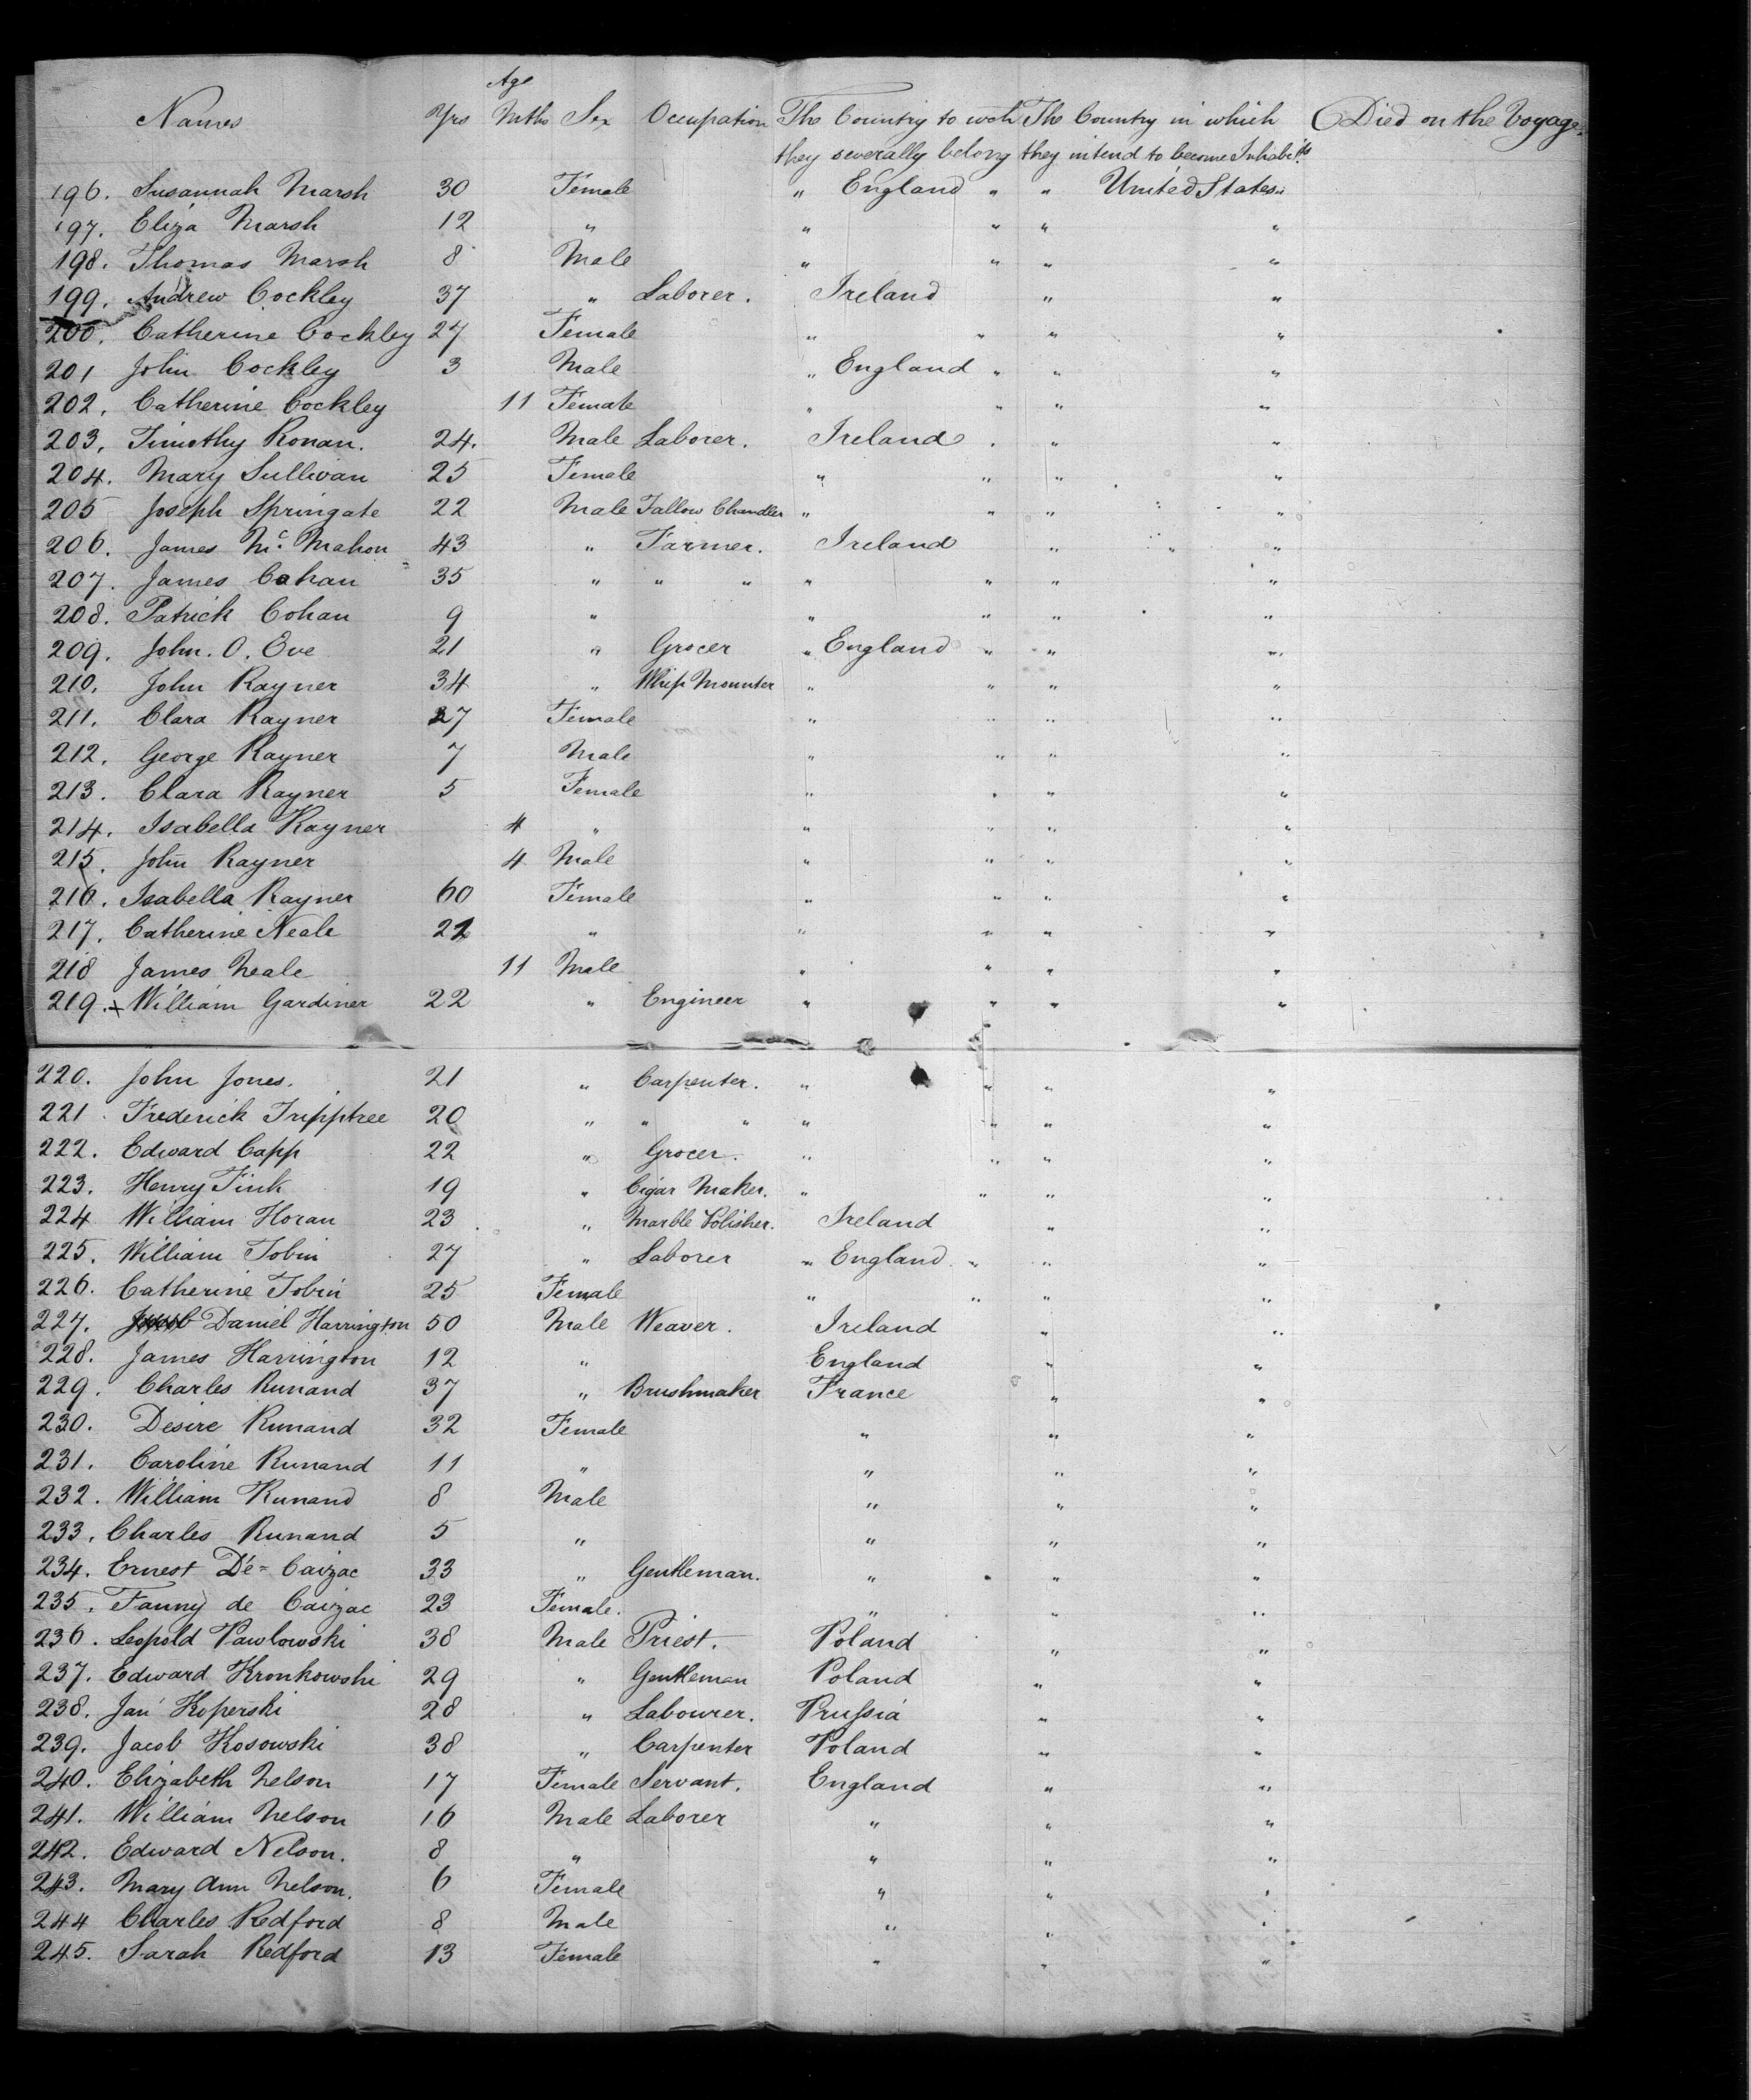 Names Yrs Age Mths Sex Occupation The Country to wch they severally belong The Country in which they intend to become Inhabits. Died on the Voyage.
196. Susannah Marsh 30 Female " England " " United States "
197. Eliza Marsh 12 " " " " "
198. Thomas Marsh 8 Male " " " "
199. Andrew Cockley 37 " Laborer. Ireland " "
200. Catherine Cockley 27 Female " " " "
201 John Cockley 3 Male " England " " "
202. Catherine Cockley 11 Female " " " "
203. Timothy Ronan. 24. Male Laborer. Ireland . " "
204. Mary Sullivan 25 Female " " " "
205 Joseph Springate 22 Male Tallow Chandler " " " "
206. James Mc. Mahon 43 " Farmer. Ireland " " "
207. James Cahan 35 " " " " " " "
208. Patrick Cohan 9 " " " " "
209. John. O. Ove 21 " Grocer " England " " "
210. John Rayner 34 " Whip Mounter " " " "
211. Clara Rayner 27 Female " " " "
212. George Rayner 7 Male " " " "
213. Clara Rayner 5 Female " " " "
214. Isabella Rayner 4 " " " " "
215. John Rayner 4 Male " " " "
216. Isabella Rayner 60 Female " " " "
217. Catherine Neale 22 " " " " "
218 James Neale 11 Male " " " "
219. x William Gardiner 22 " Engineer " " " "
220. John Jones. 21 " Carpenter. " " " "
221. Frederick Tripptree 20 " " " " " " "
222. Edward Capp 22 " Grocer. " " " "
223. Henry Fink 19 " Cigar Maker. " " " "
224 William Horan 23 " Marble Polisher. Ireland " "
225. William Tobin 27 " Laborer " England " " "
226. Catherine Tobin 25 Female " " " "
227. Daniel Harrington 50 Male Weaver. Ireland " "
228. James Harrington 12 " England " "
229. Charles Runand 37 " Brushmaker France " "
230. Desire Runand 32 Female " " "
231. Caroline Runand 11 " " " "
232. William Runand 8 Male " " "
233. Charles Runand 5 " " " "
234. Ernest De= Caizac 33 " Gentleman. " " "
235. Fanny de Caizac 23 Female. " " "
236. Leopold Pawlowski 38 Male Priest. Poland " "
237. Edward Kronkowski 29 " Gentleman Poland " "
238. Jan Koperski 28 " Labourer. Prussia " "
239. Jacob Kosowski 38 " Carpenter Poland " "
240. Elizabeth Nelson 17 Female Servant. England " "
241. William Nelson 16 Male Laborer " " "
242. Edward Nelson. 8 " " " "
243. Mary Ann Nelson. 6 Female " " "
244 Charles Redford 8 Male " " "
245. Sarah Redford 13 Female " " "